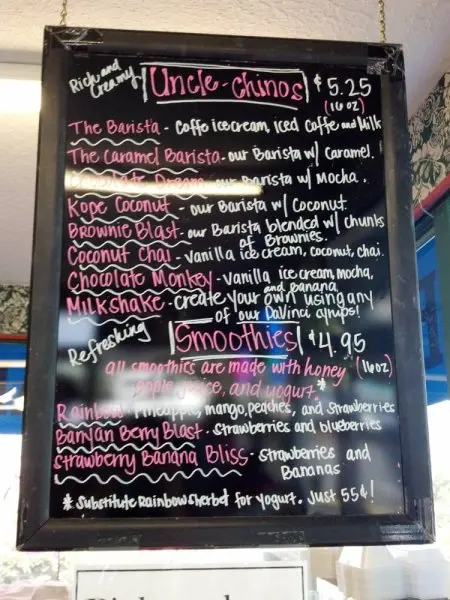 Rich and Creamy
Uncle-Chinos $5.25
(16 oz)
The Barista - Coffe icecream, Iced Coffe and Milk
The Caramel Barista - our Barista w/ Caramel.
Chocolate Dream - our Barista w/ Mocha.
Kope Coconut - our Barista w/ Coconut.
Brownie Blast - our Barista blended w/ chunks
of Brownies.
Coconut Chai - vanilla ice cream, coconut, chai.
Chocolate Monkey - vanilla ice cream, mocha,
and banana
Milkshake - create your own using any
of our DaVinci syrups!
Refreshing
Smoothies $4.95
all smoothies are made with honey (16oz)
apple juice, and yogurt.*
Rainbow - Pineapple, mango, peaches, and Strawberries
Banyan Berry Blast - Strawberries and blueberries
Strawberry Banana Bliss - Strawberries and
Bananas
* Substitute Rainbow Sherbet for yogurt. Just 55¢!